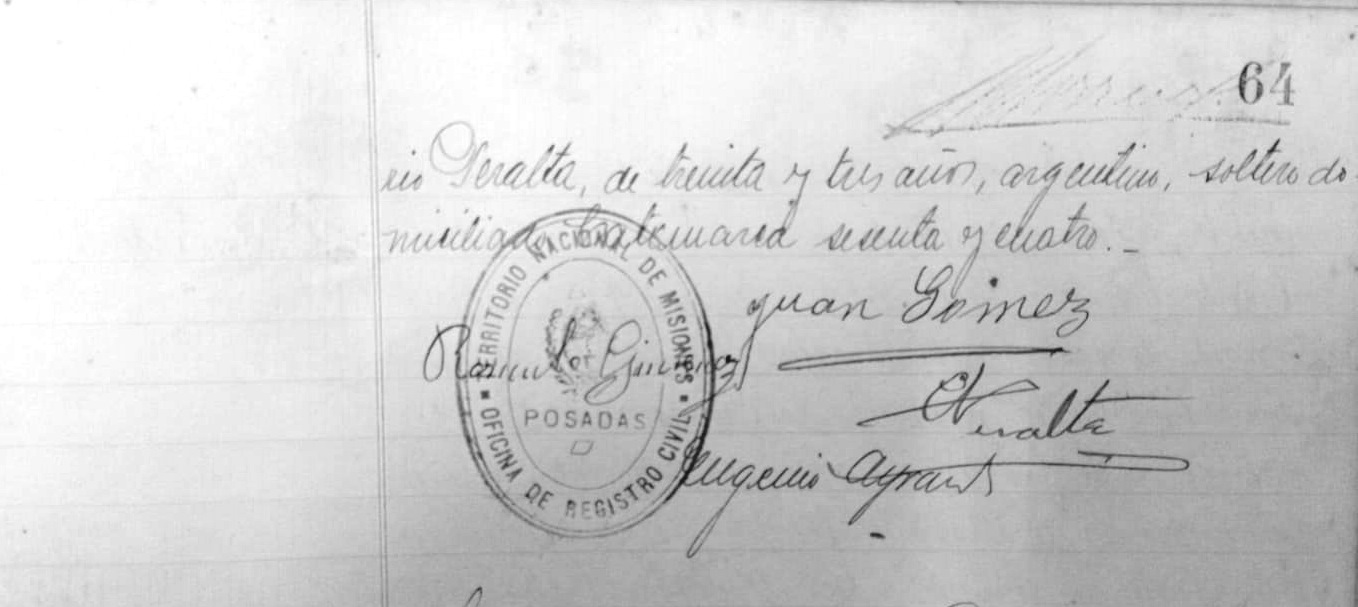 64
rio Peralta, de treinta y tres años, argentino, soltero do-
miciliado Catamarca sesenta y cuatro.-
Juan Gomez
TERRITORIO NACIONAL DE MISIONES
Gimenez
POSADAS
Peralta
OFICINA DE REGISTRO CIVIL
Eugenio